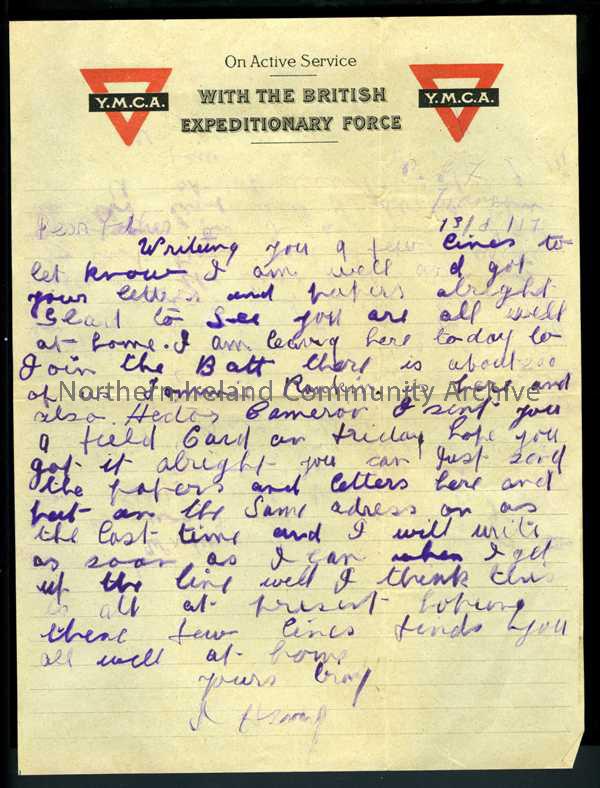 On Active Service
WITH THE BRITISH
EXPEDITIONARY FORCE
Y.M.C.A.
Y.M.C.A.
Dear Father
Writing you a few lines to
let know I am well and got
your letters and papers alright
Glad to see you are all well
at home. I am leaving here today to
Join the Batt there is about 200
of us Rankin is here and
also Hector Cameron I sent you
a field Card on Friday hope you
got it alright you can Just send
the papers and letters here and
put on the Same adress on as
the last time and I will write
as soon as I can when I get
up the line well I think this
is all at present hoping
these few lines finds you
all well at home
yours
Northern Ireland Community Archive